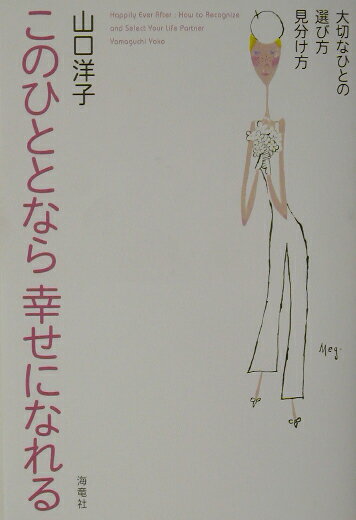 大切なひとの
選び方
見分け方
Happily Ever After : How to Recognize
and Select Your Life Partner
Yamaguchi Yoko
山口洋子
このひととなら 幸せになれる
Meg.
海竜社